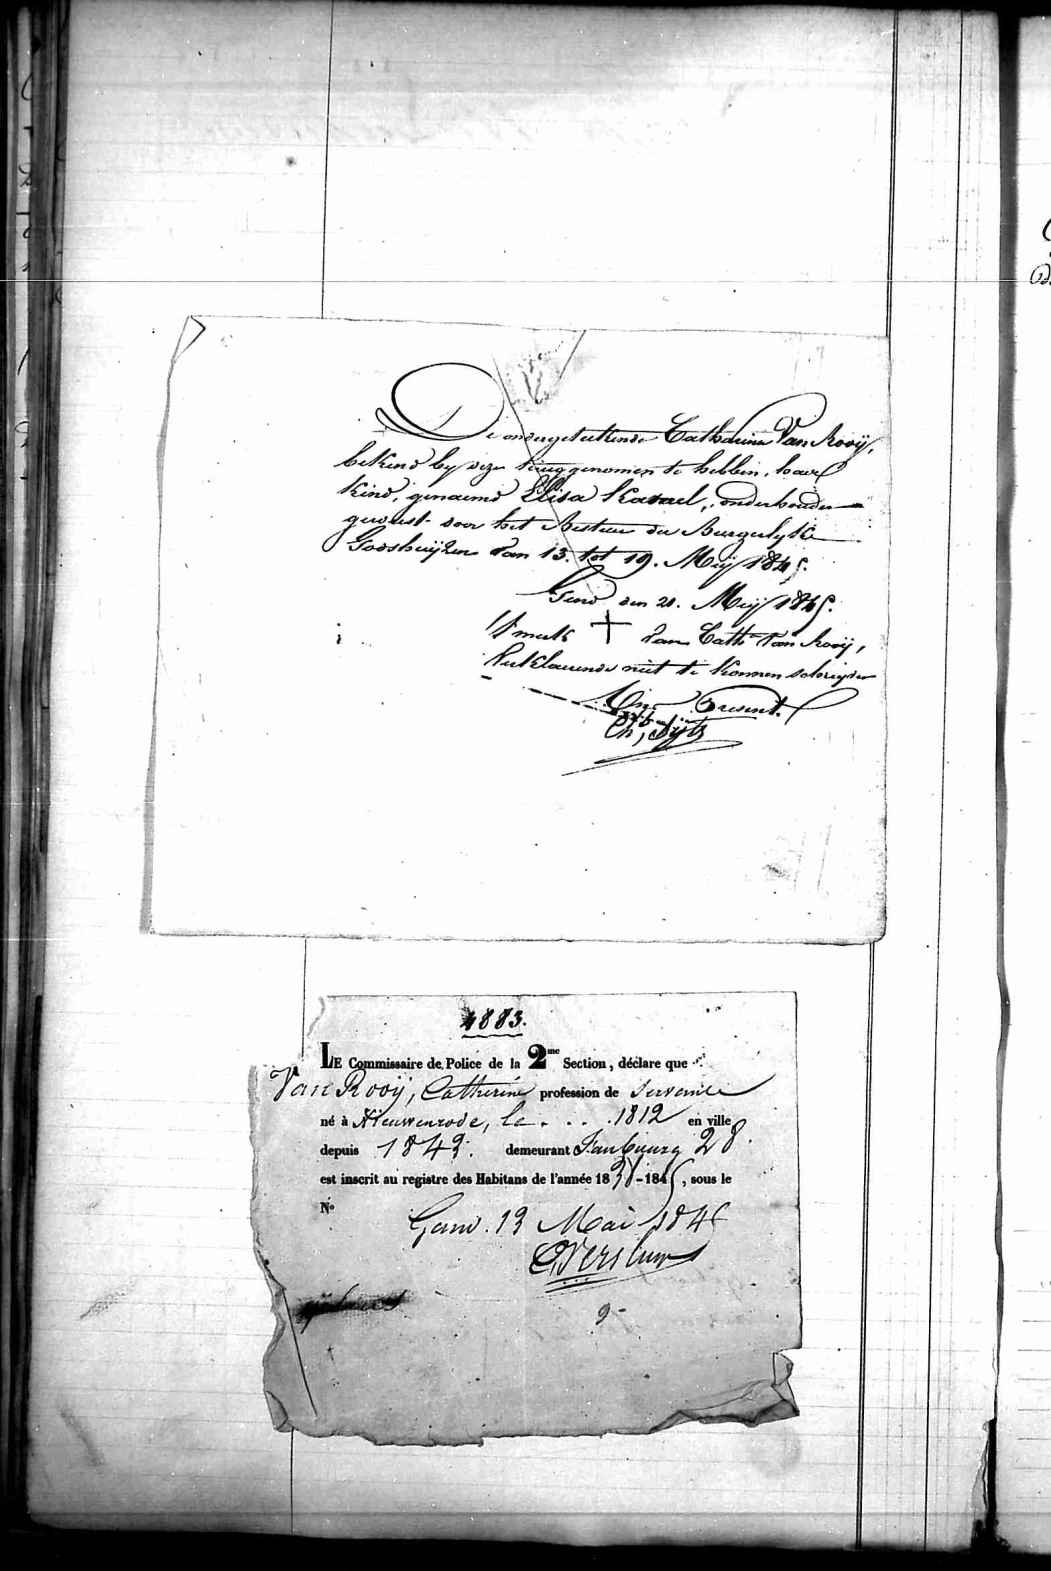 De ondergeteekende Catharina Van Rooij,
bekend by deze terug genomen te hebben, haar
kind, genaemd Elisa Karael, onderhouden
geweest door het Bestier der Burgerlyke
Godshuijzen van 13. tot 19. Meij 1845.
Gend den 21. Meij 1845.
't merk + van Cath. Van Rooij,
verklarende niet te konnen schrijven
Present.
4883.
LE Commissaire de Police de la 2me Section, déclare que
Van Rooij, Catherine profession de Servante
né à Nieuwenrode, le . . . 1812 en ville
depuis 1843. demeurant Faubourg 28.
est inscrit au registre des Habitans de l'année 18 -1845, sous le
No
Gand. 13 Mai 1845
9-